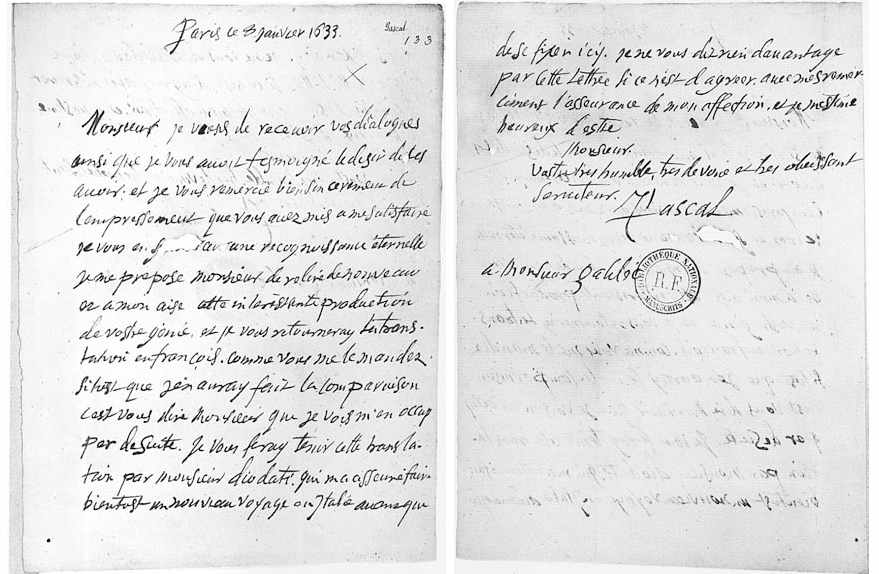 Paris ce 8 janvier 1633.
Pascal
133
Monsieur je viens de recevoir vos dialogues
ainsi que je vous avoit tesmoigné le desir de les
avoir. et je vous remercie bien sincerement de
l'empressement que vous avez mis a me satisfaire
je vous en une recognoissance éternelle
je me propose monsieur de relire de nouveau
et a mon aise cette interessante production
de vostre génie, et je vous retourneray la trans-
lation en françois. comme vous me le mandez.
sitost que j'en auray fait la comparaison
c'est vous dire Monsieur que je vois m'en occup
per de suite. Je vous feray tenir cette transla-
tion par monsieur diodati. qui m'a asseuré faire
bientost un nouveau voyage en Italie avant que
de se fixer icy. je ne vous diz rien davantage
par cette lettre si ce n'est d'agreer avec mes remer-
ciment l'asseurance de mon affection. et je m'estime
heureux d'estre.
Monsieur.
Vostre tres humble, tres devoué et tres obeissant
serviteur.
Pascal
a Monsieur galilée
BIBLIOTHÈQUE NATIONALE
R.F.
MANUSCRITS